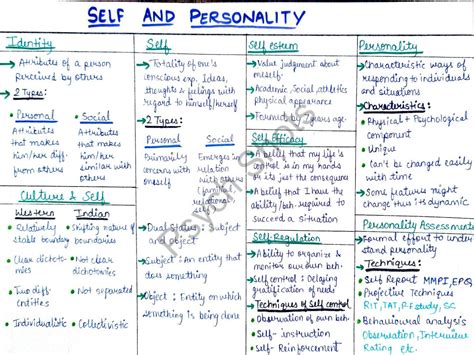 SELF AND PERSONALITY
Identity
→ Attributes of a person
perceived by others
→ 2 Types:
Personal Social
Attributes Attributes
that makes that makes
him/her him/her similar
diff. from to others
others
Culture & Self
Western Indian
• Relatively • Shifting nature of
stable boundary boundaries
• Clear dichoto- • Not clear
mies dichotomies
• Two diff. • Not separated
entities entities
• Individualistic • Collectivistic
Self
→ Totality of one's
conscious exp. Ideas,
thoughts & feelings with
regard to himself/herself
→ 2 Types:
Personal Social
Primarily Emerges in
concerns with relation
oneself with others
(family
relations)
→ Dual Status: Subject
and object
→ Subject: An entity that
does something
→ Object: Entity on which
something is being done
Self esteem
→ Value judgment about
oneself
→ Academic, Social, athletics
physical appearance
→ Formed years age
Self Efficacy
→ A belief that my life's
control is in my hands
& its just the consequences
→ A belief that I have the
ability/beh. required to
succeed a situation
Self-Regulation
→ Ability to organize &
monitor our own beh.
→ Self control: Delaying
gratification of needs
Techniques of Self control:
→ Observation of own beh.
→ Self-instruction
→ Self-Reinforcement
Personality
→ Characteristic ways of
responding to individuals
and situations
→ Characteristics:
• Physical + Psychological
component
• Unique
• Can't be changed easily
with time
• Some features might
change thus its dynamic
Personality Assessment
→ Formal effort to under-
stand personality
→ Techniques:
• Self Report MMPI, EPQ
• Projective Techniques
RIT, TAT, P.F study, SC
• Behavioural analysis
Observation, Interview
Rating etc.